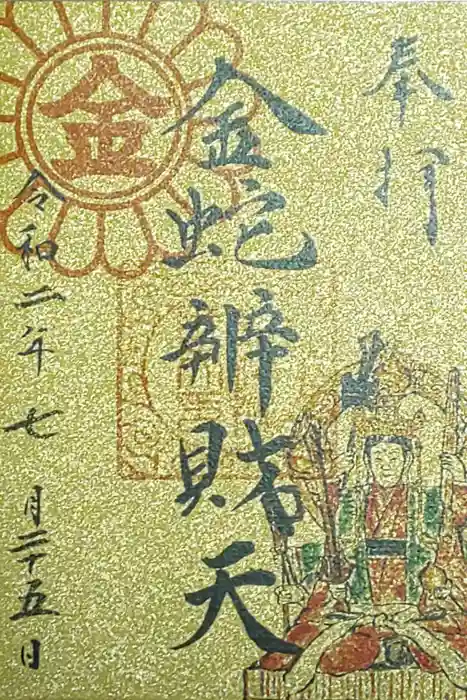 奉拝
金蛇辨財天
金
令和二年七月二十五日